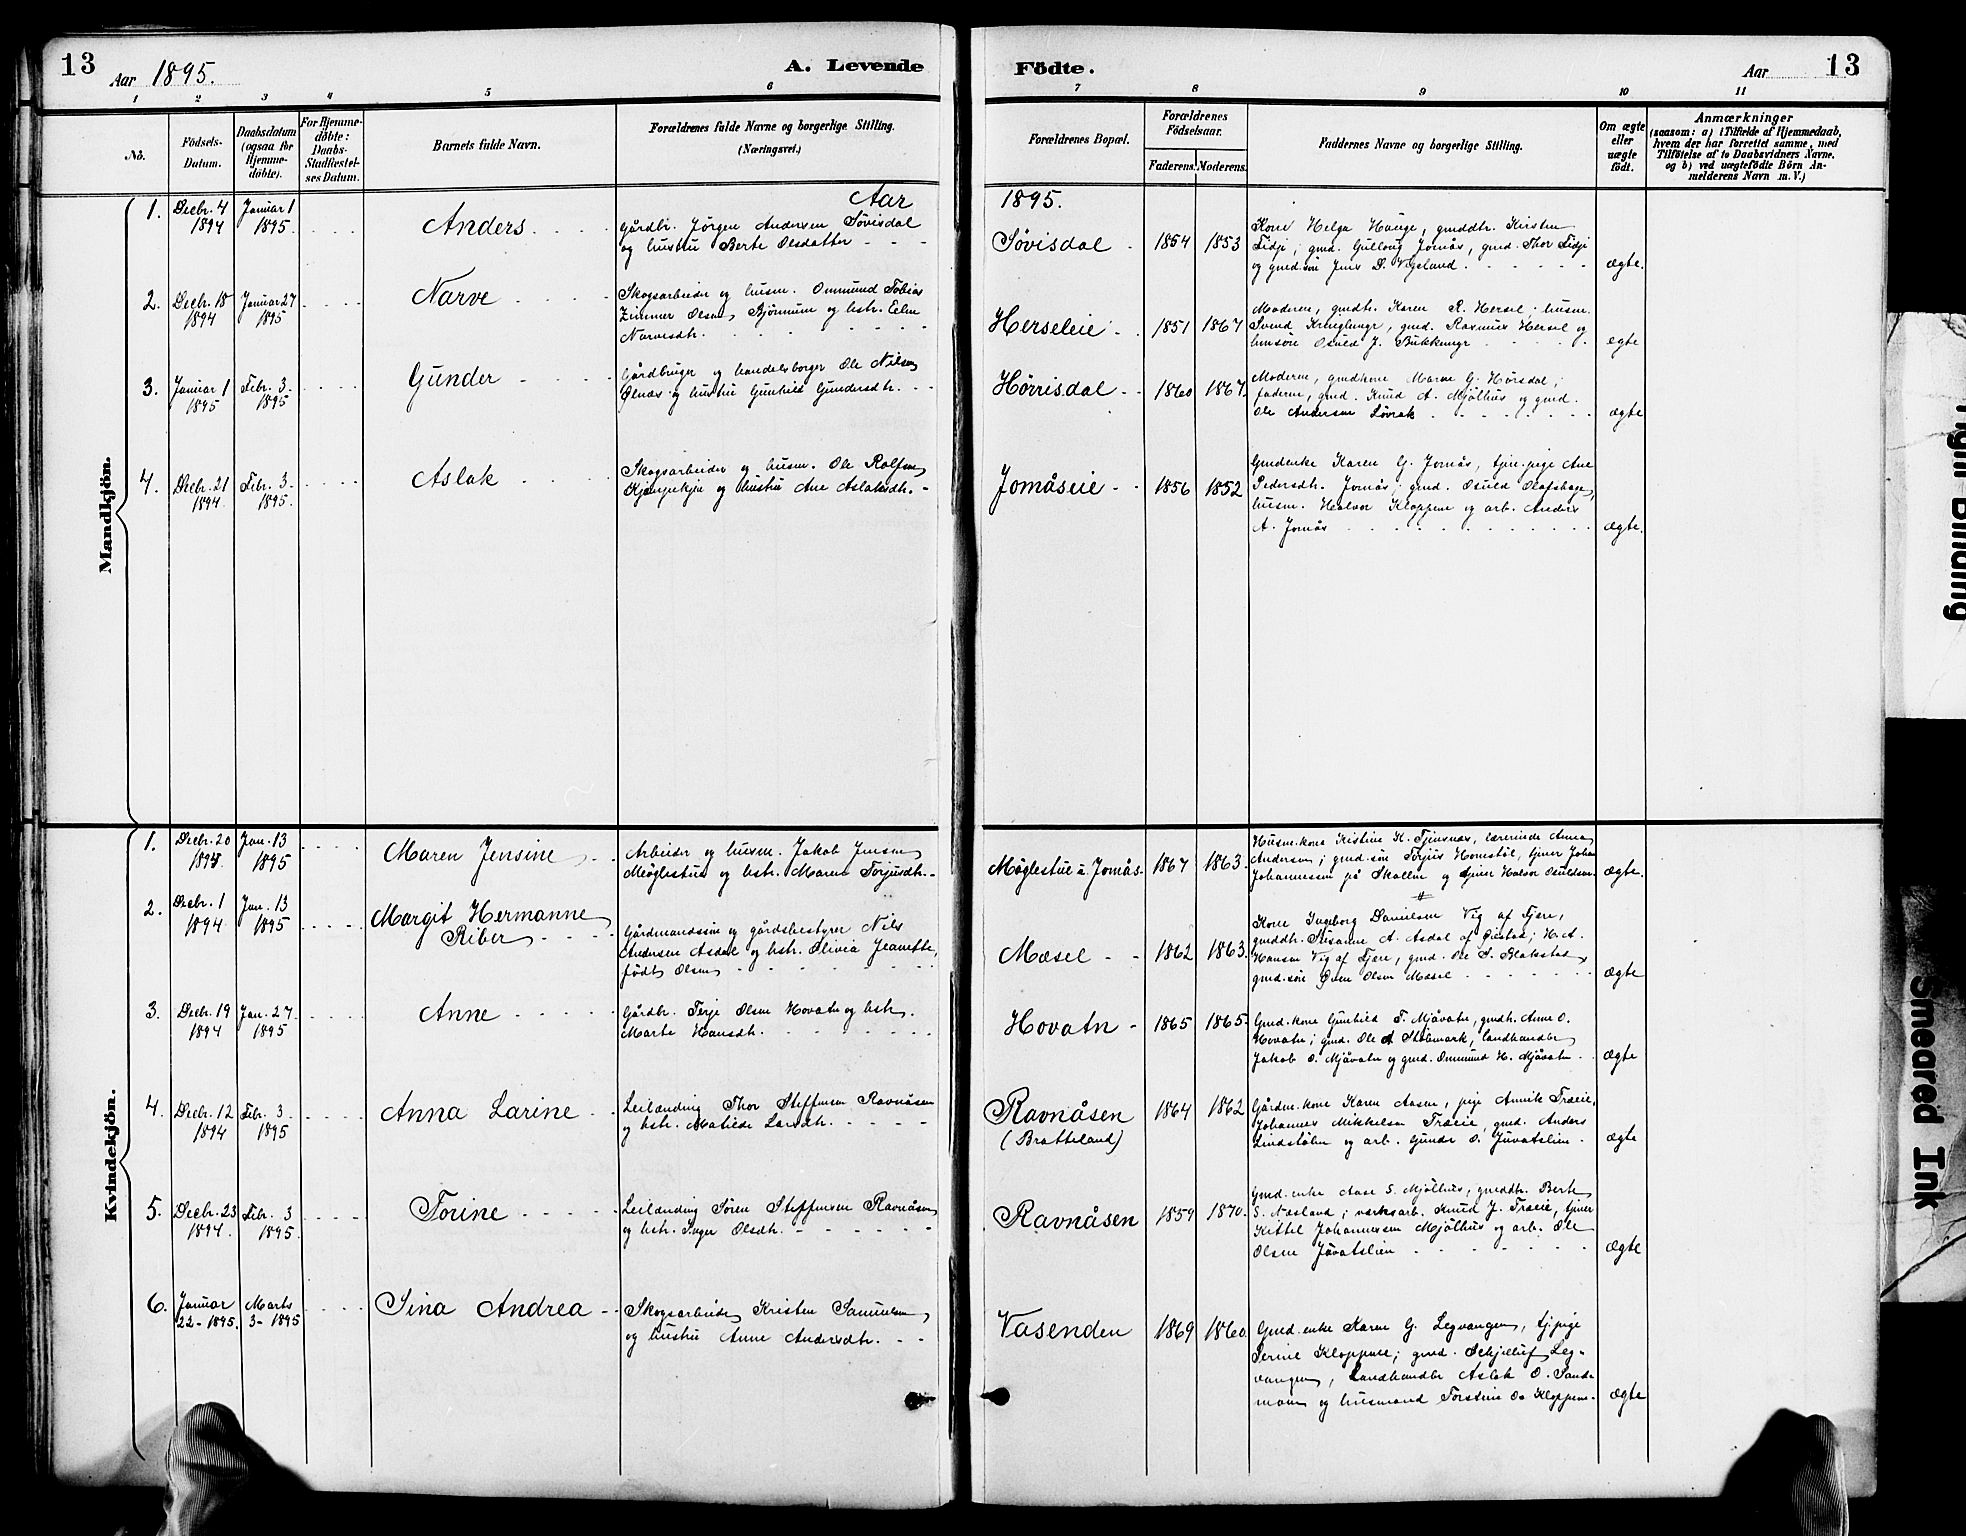 13
Aar 1895.
A. Levende
Födte.
Aar
13
1 2 3 4 5 6 7 8 9 10 11
No.
Födsels-
Datum.
Daabsdatum
(ogsaa for
Hjemme-
döbte).
For Hjemme-
döbte:
Daabs-
Stadfæstel-
ses Datum.
Barnets fulde Navn.
Forældrenes fulde Navne og borgerlige Stilling.
(Næringsvei.)
Forældrenes Bopæl.
Forældrenes
Födselsaar.
Faderens. Moderens.
Faddernes Navne og borgerlige Stilling.
Om ægte
eller
uægte
födt.
Anmærkninger
(saasom: a) i Tilfælde af Hjemmedaab,
hvem der har forrettet samme, med
Tilföielse af to Daabsvidners Navne,
og b) ved uægtefödte Börn An-
melderens Navn m. V.)
Aar
1895.
Mandkjön.
1. Decbr. 4 1894
Januar 1 1895.
Anders
Gårdbr. Jörgen Andersen Sövisdal
og hustru Berte Olsdatter
Sövisdal
1854 1853
Kone Helga Hauge, gmddtr. Kirsten
Fidje; gmd. Gullow Jomås, gmd. Thor Fidje
og gmd.sön Jens D. Vegeland
ægte.
2. Decbr. 18 1894
Januar 27 1895
Narve
Skogsarbeider og husm. Ommund Tobias
Zimmer Olsen Bjönnum og hstr. Elen
Narvesdtr.
Herseleie
1851 1867
Moderen, gmdtr. Karen R. Hersel; husm.
Svend, gmd. Rasmus Hersel og
Osuld J.
egte
3. Januar 1 1895
Febr. 3. 1895
Gunder
Gårdbruger og handelsborger Ole Nilsen
Ölnäs og hustru Gunhild Gundersdtr.
Hörrisdal
1860 1867.
Moderen, gmdkone Maren G. Hörsdal;
faderen, gmd. Knud A. Mjölhus og gmd.
Ole Andersen Lövrak
ægte
4. Decbr. 21 1894
Febr. 3. 1895.
Aslak
Skogsarbeider og husm. Ole Rolfsen
og hustru Ane Aslaksdtr.
Jomåseie
1856 1852
Gmdenke Karen G. Jomås, tjen. pige Ane
Pedersdtr. Jomås; gmd. Osuld Olafshage,
husm. Halvor Kloppene og arb. Anders
A. Jomås
ægte.
Kvindekjön.
1. Decbr. 20 1894
Jan. 13 1895
Maren Jensine
Arbeider og husm. Jakob Jensen
Möglestue og hstr. Maren Torjusdtr.
Möglestue u. Jomås
1867 1863.
Husm.kone Kristine K. Tjensnæs, lærerinde Anna
Andersen; gmd.sön Torjus Homestöl, tjener Johan
Johannessen på Skollen og tjener Halvor Osuldsen.
ægte.
2. Decbr. 1 1894
Jan. 13 1895
Margit Hermanne
Riber
Gårdmandssön og gårdsbestyrer Nils
Andersen Asdal og hstr. Olivia Jeanette,
född Olsen
Mæsel
1862 1863.
Kone Ingeborg Danielsen Vig af Fjære,
gmddtr. Susanne A. Asdal af Öiestad; H. A.
Hansen Vig af Fjære, gmd. Ole S. Blakstad,
gmd.sön Even Olsen Mæsel
ægte
3. Decbr. 19 1894
Jan. 27. 1895
Anne
Gårdbr. Terje Olsen Hovatn og hstr.
Marte Hansdtr.
Hovatn
1865 1865.
Gmd.kone Gunhild T. Mjåvatn, gmdtr. Anne O.
Hovatn; gmd. Ole A Stölemark, landhandler
Jakob O. Mjåvatn og gmd. Ommund H. Mjåvatn
ægte
4. Decbr. 12 1894
Febr. 3 1895
Anna Larine
Leilænding Thor Steffensen Ravnåsen
og hstr. Matilde Larsdtr.
Ravnåsen
(Bratteland)
1864 1862
Gårdm.kone Karen Aasen, pige Annik Træeie,
Johannes Mikkelsen Træeie, gmd. Anders
Lindstölen og arb. Gunder O. Juvatslien
ægte
5. Decbr. 23 1894.
Febr. 3 1895.
Torine
Leilænding Sören Steffensen Ravnåsen
og hstr. Inger Olsdtr.
Ravnåsen
1859 1870.
Gmd.enke Aase S. Mjölhus, gmddtr. Berte
S. Næsland; verksarb. Knud J. Træeie, tjener
Kittel Johannessen Mjölhus og arb. Ole
Olsen Jövatslien
ægte
6. Januar 22- 1895.
Marts 3- 1895
Sina Andrea
Skogsarbeider Kristen Samuelsen
og hustru Anne Andersdtr.
Vasenden
1869 1860.
Gmd.enke Karen G. Legvangen, tj.pige
Serine Kloppene; gmd. Schjelluf Leg-
vangen, Landhandler Aslak O. Sande
moen og husmand Torsten O. Kloppene.
ægte
Tight Binding
Smeared Ink